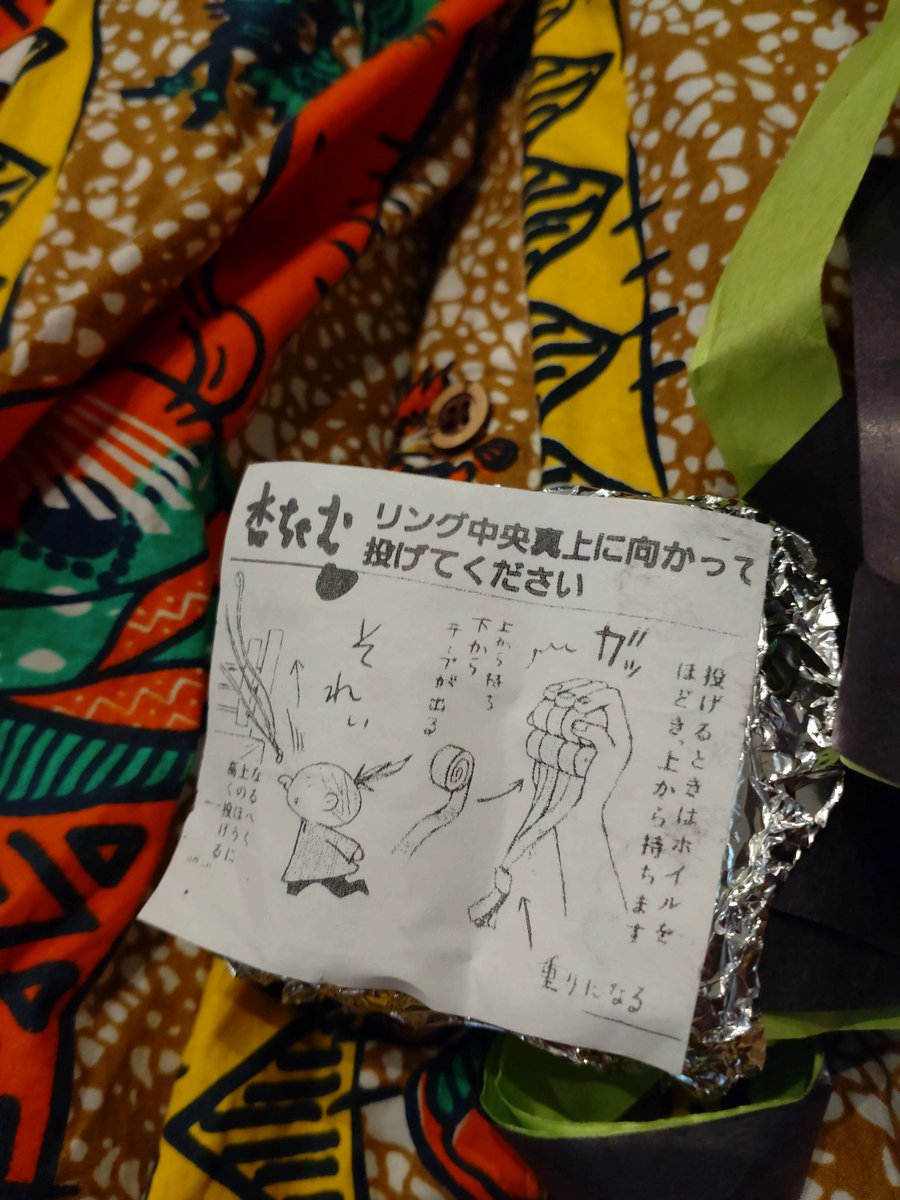 杏ちゃむ
リング中央真上に向かって
投げてください
投げるときはホイルを
ほどき、上から持ちます
ガッ
上から持つ
下から
テープが出る
それぃ
なるべく
上のほうに
高く投げる
重りになる